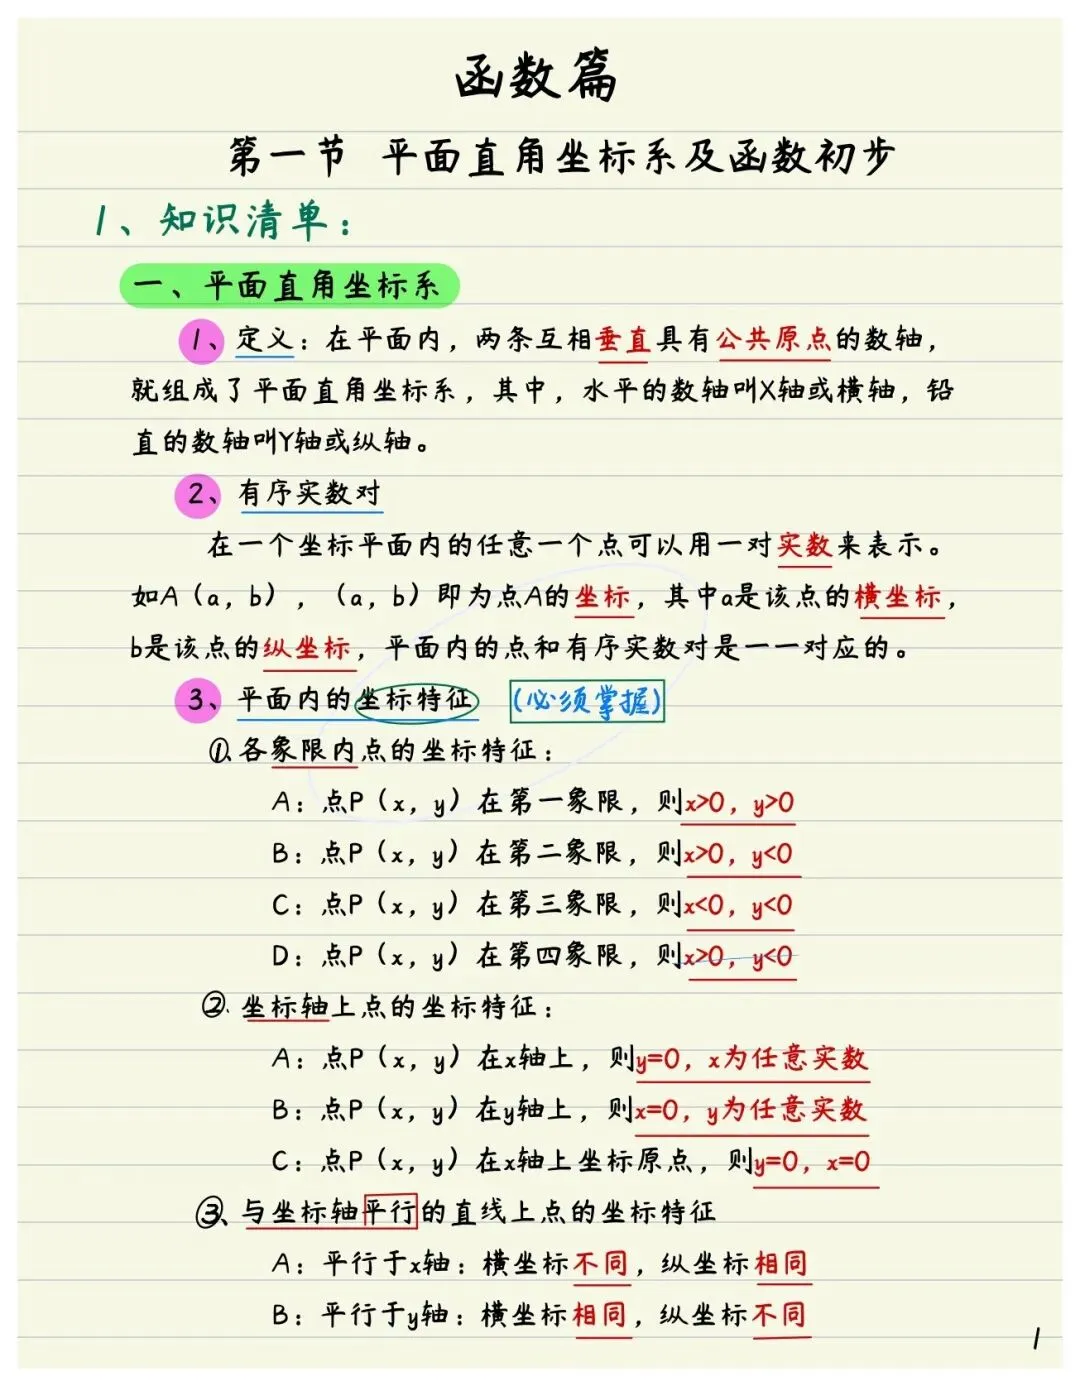 函数篇
第一节 平面直角坐标系及函数初步
1、知识清单：
一、平面直角坐标系
1、定义：在平面内，两条互相垂直具有公共原点的数轴，
就组成了平面直角坐标系，其中，水平的数轴叫X轴或横轴，铅
直的数轴叫Y轴或纵轴。
2、有序实数对
在一个坐标平面内的任意一个点可以用一对实数来表示。
如A（a，b），（a，b）即为点A的坐标，其中a是该点的横坐标，
b是该点的纵坐标，平面内的点和有序实数对是一一对应的。
3、平面内的坐标特征 （必须掌握）
①、各象限内点的坐标特征：
A：点P（x，y）在第一象限，则x>0，y>0
B：点P（x，y）在第二象限，则x>0，y<0
C：点P（x，y）在第三象限，则x<0，y<0
D：点P（x，y）在第四象限，则x>0，y<0
②、坐标轴上点的坐标特征：
A：点P（x，y）在x轴上，则y=0，x为任意实数
B：点P（x，y）在y轴上，则x=0，y为任意实数
C：点P（x，y）在x轴上坐标原点，则y=0，x=0
③、与坐标轴平行的直线上点的坐标特征
A：平行于x轴：横坐标不同，纵坐标相同
B：平行于y轴：横坐标相同，纵坐标不同
1